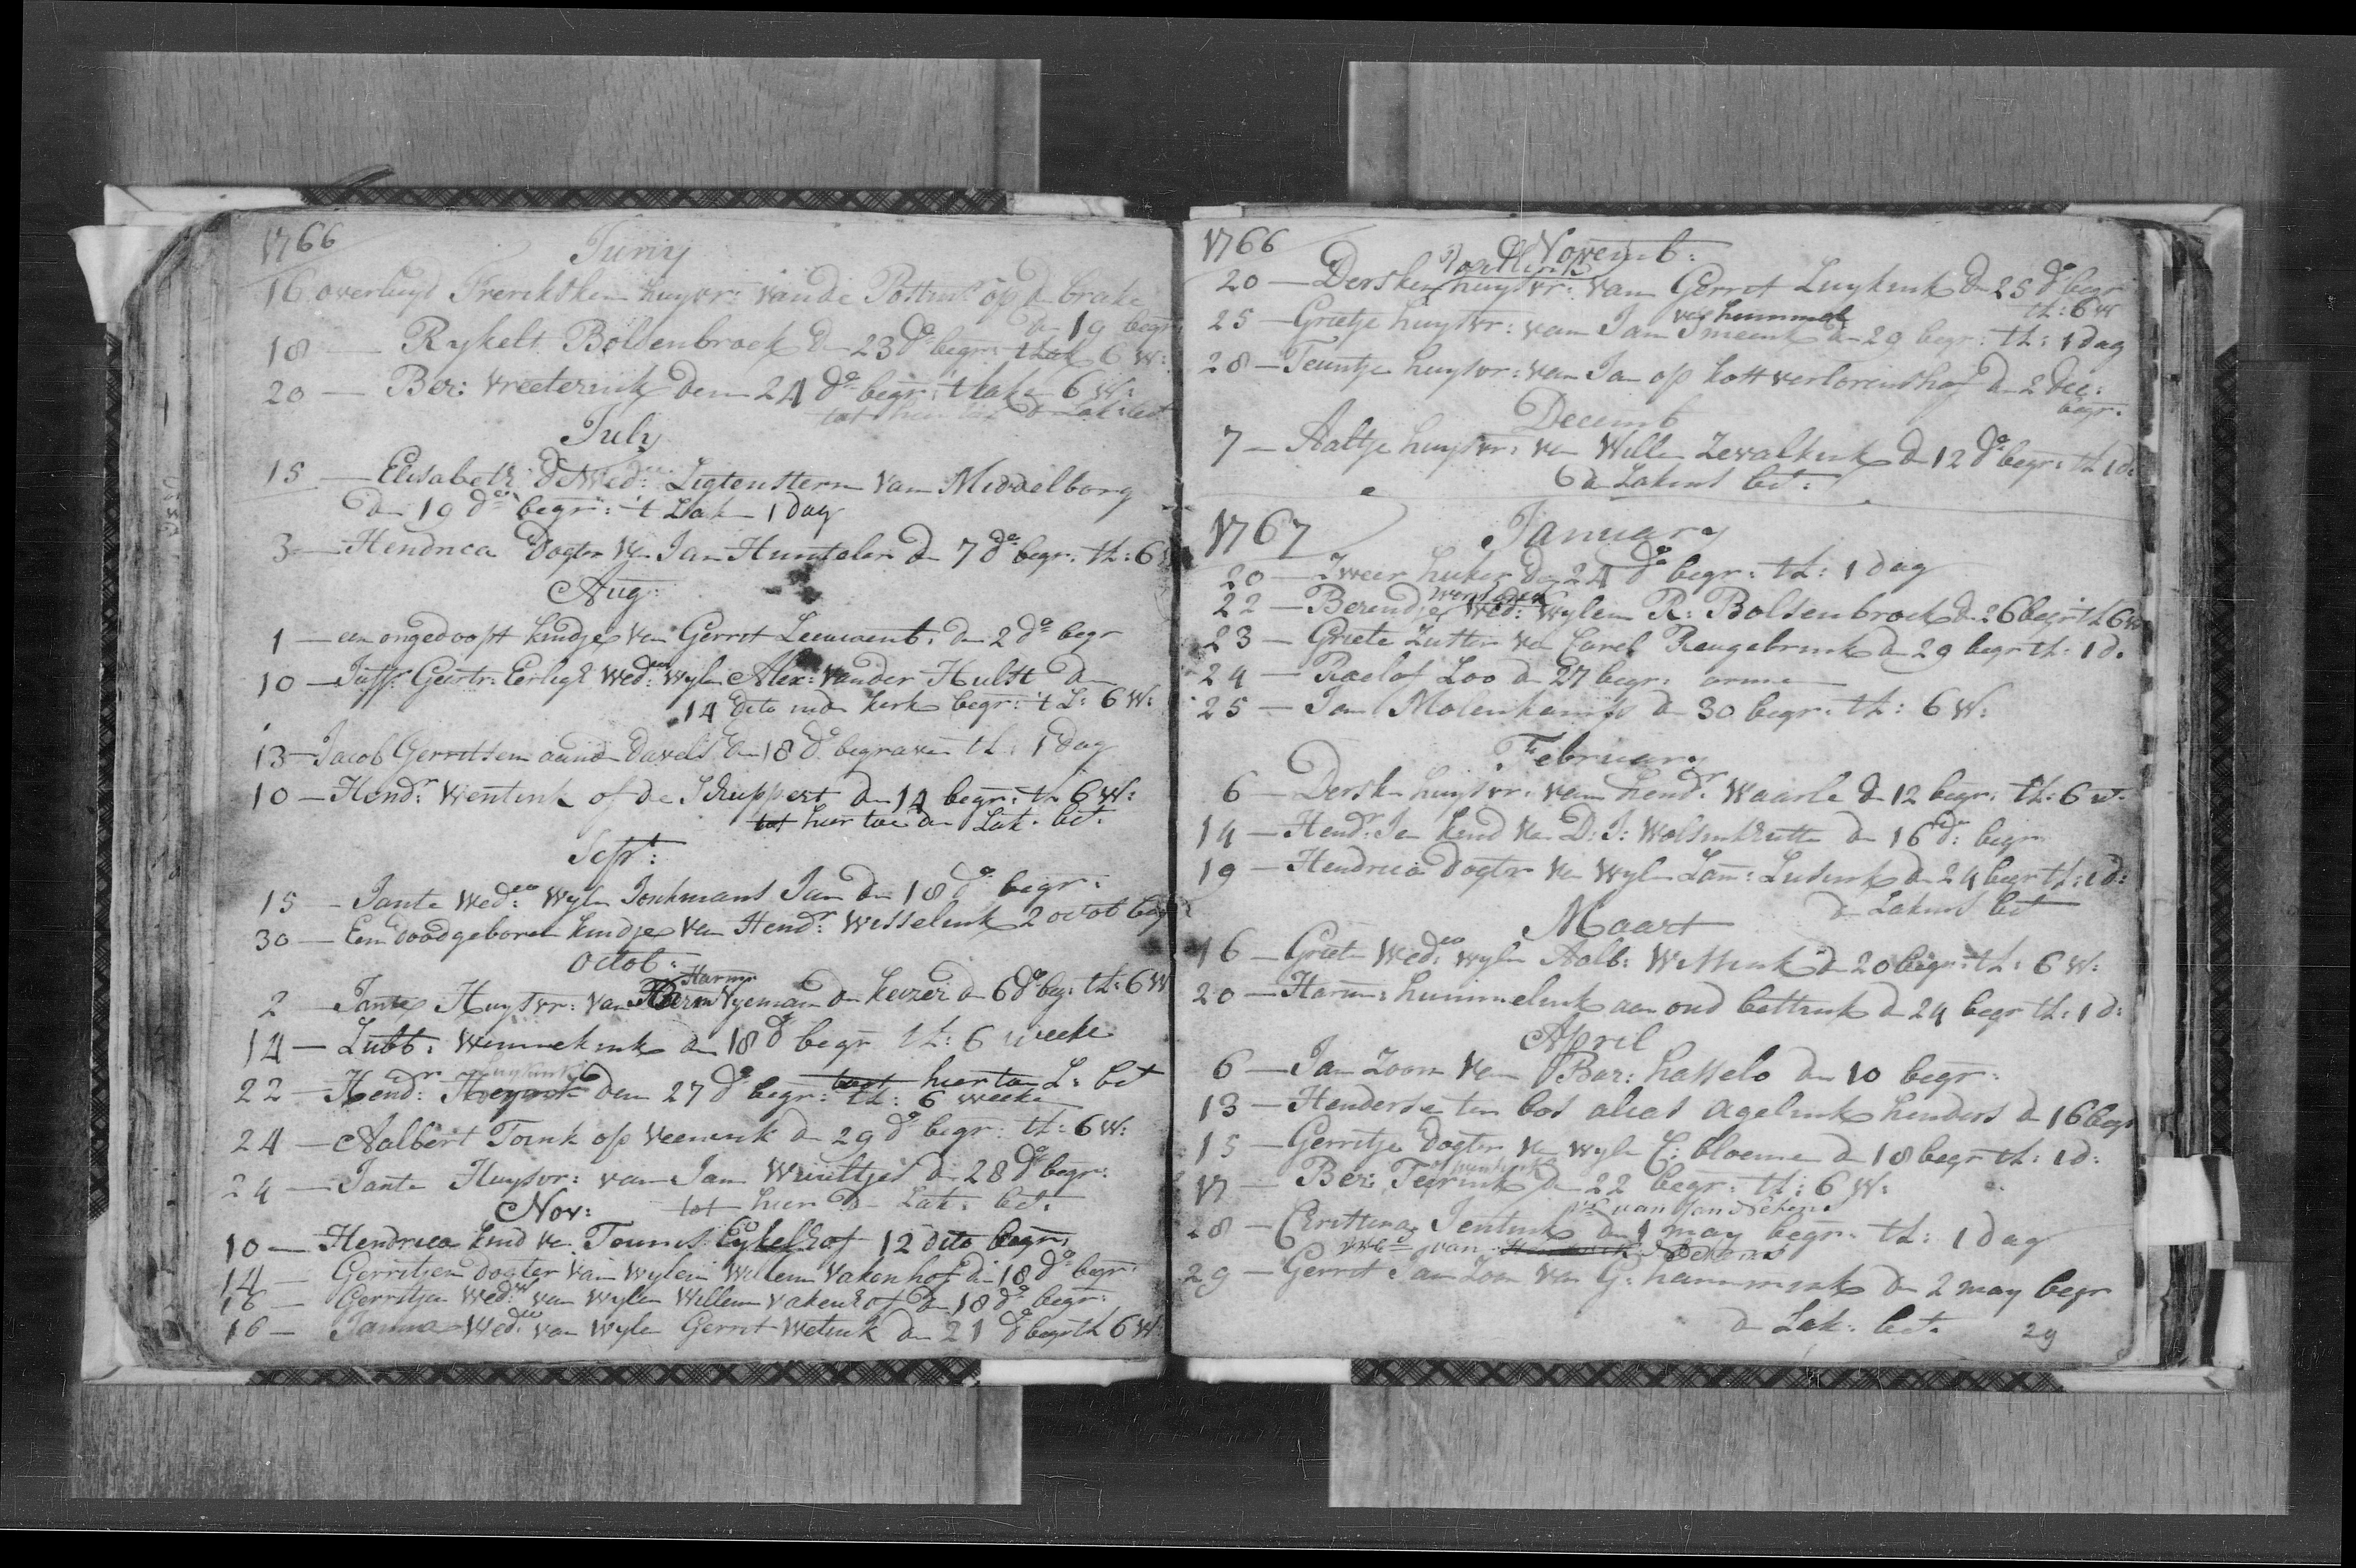 1766 Juny
16 overluyd Freriksken huysvr: van de Pottink op d brake
dn 19 begr:
18 — Rykelt Bolsenbroek dn 23 do begr: t lak 6 W:
20 — Ber: Vreeterink den 24 do begr: t laken 6 W:
tot hier d Lak: bet
July
15 — Elisabeth d Wed: Ligtenstern van Middelborg
dn 19 do begr: 't Lak 1 dag
3 — Hendrica Dogter vn Jan Huntelar dn 7 do begr: th: 6
Aug:
1 — een ongedoopt kindje vn Gerrit Leeuwenb: dn 2 do begr
10 — Juffr Geertr: Eerligh Wed: wyln Alex: vander Hulst dn
14 dito inde kerk begr: 't L: 6 W:
13 — Jacob Gerritsen aand Davels dn 18 do begraven th: 1 dag
10 — Hendr: Wentink of de Schuppert dn 14 begr: th 6 W:
tot hier toe dn Lak: bet:
Sept:
15 — Jante Wed: wyln Jonkmans Jan dn 18 do begr:
30 — Een doodgeboren kindje vn Hendr: Wisselink 2 octob begr
octob:
Harm
2 — Jante Huysvr: van Harm Vyeman dn keizer dn 6 do beg: th: 6 W
14 — Lubb: Wennekink dn 18 do begr th: 6 weeke
toot hier toe L: bet
22 — Hendr: den 27 do begr: th: 6 weeke
24 — Aalbert Tornk op Veenink dn 29 do begr: th: 6 W:
24 — Jante Huysvr: van Jan Wueltjes dn 28 do begr:
Nov: tot hier d Lak: bet:
10 — Hendrica kind vn Teunis Eykelhof 12 dito begr:
14 — Gerritjen dogter van wylen Willem Vakenhof dn 18 do begr:
16 — Gerritjen Wed: van wylen Willem Vakenhof dn 18 do begr:
16 — Janna Wed: van wyln Gerrit Wetink dn 21 do begr th 6 W:
1766 Novemb:
20 — Dersken huysvr: van Gerrit Luykink dn 25 do begr
th: 6 W
van hummel
25 — Grietje huysvr: van Jan Smeenk dn 29 begr: th: 1 dag
28 — Teuntje huysvr: van Jan op kott verlorenshof dn 2 Dec:
begr:
Decemb
7 — Aaltje huysvr: vn Willem Zevalkink dn 12 do begr: th 1 d:
d Lakens bet:
1767 January
20 — Zweer huker dn 24 do begr: th: 1 dag
22 — Berendje Wed: wylen R: Bolsenbroek dn 26 begr th 6 w
23 — Griete Zutter vn Carel Reugebrink dn 29 begr th: 1 d.
24 — Roelof Loo dn 27 begr: arme
25 — Jan Molenkamp dn 30 begr: th: 6 W:
February
6 — Dersken huysvr: van hendr: Waarle dn 12 begr: th: 6 w:
14 — Hendr: Jan kend vn D: J: Wolsinkrutte dn 16 do: begr
19 — Hendrica dogter vn wyln Lam: Lusink dn 24 begr th: 1 d:
Maart d Lakens bet
16 — Griete Wed: wyln Aalb: Wessink dn 20 begr: th: 6 W:
20 — Harm: hummelink aan oud bettink dn 24 begr th: 1 d:
April
6 — Jan Zoon van Bar: hasselo dn 10 begr:
13 — Henderse ten bos alias Agelink henders dn 16 begr
15 — Gerritje Dogter vn wyln C: bloeme dn 18 begr th: 1 d:
17 — Ber: Teerink dn 22 begr: th: 6 W:
van Jan Dekens
28 — Cristina Jentink dn 1 may begr: th: 1 dag
van Dekens
29 — Gerrit Jan Zoon van G: hammink dn 2 may begr
d Lak: bet: 29